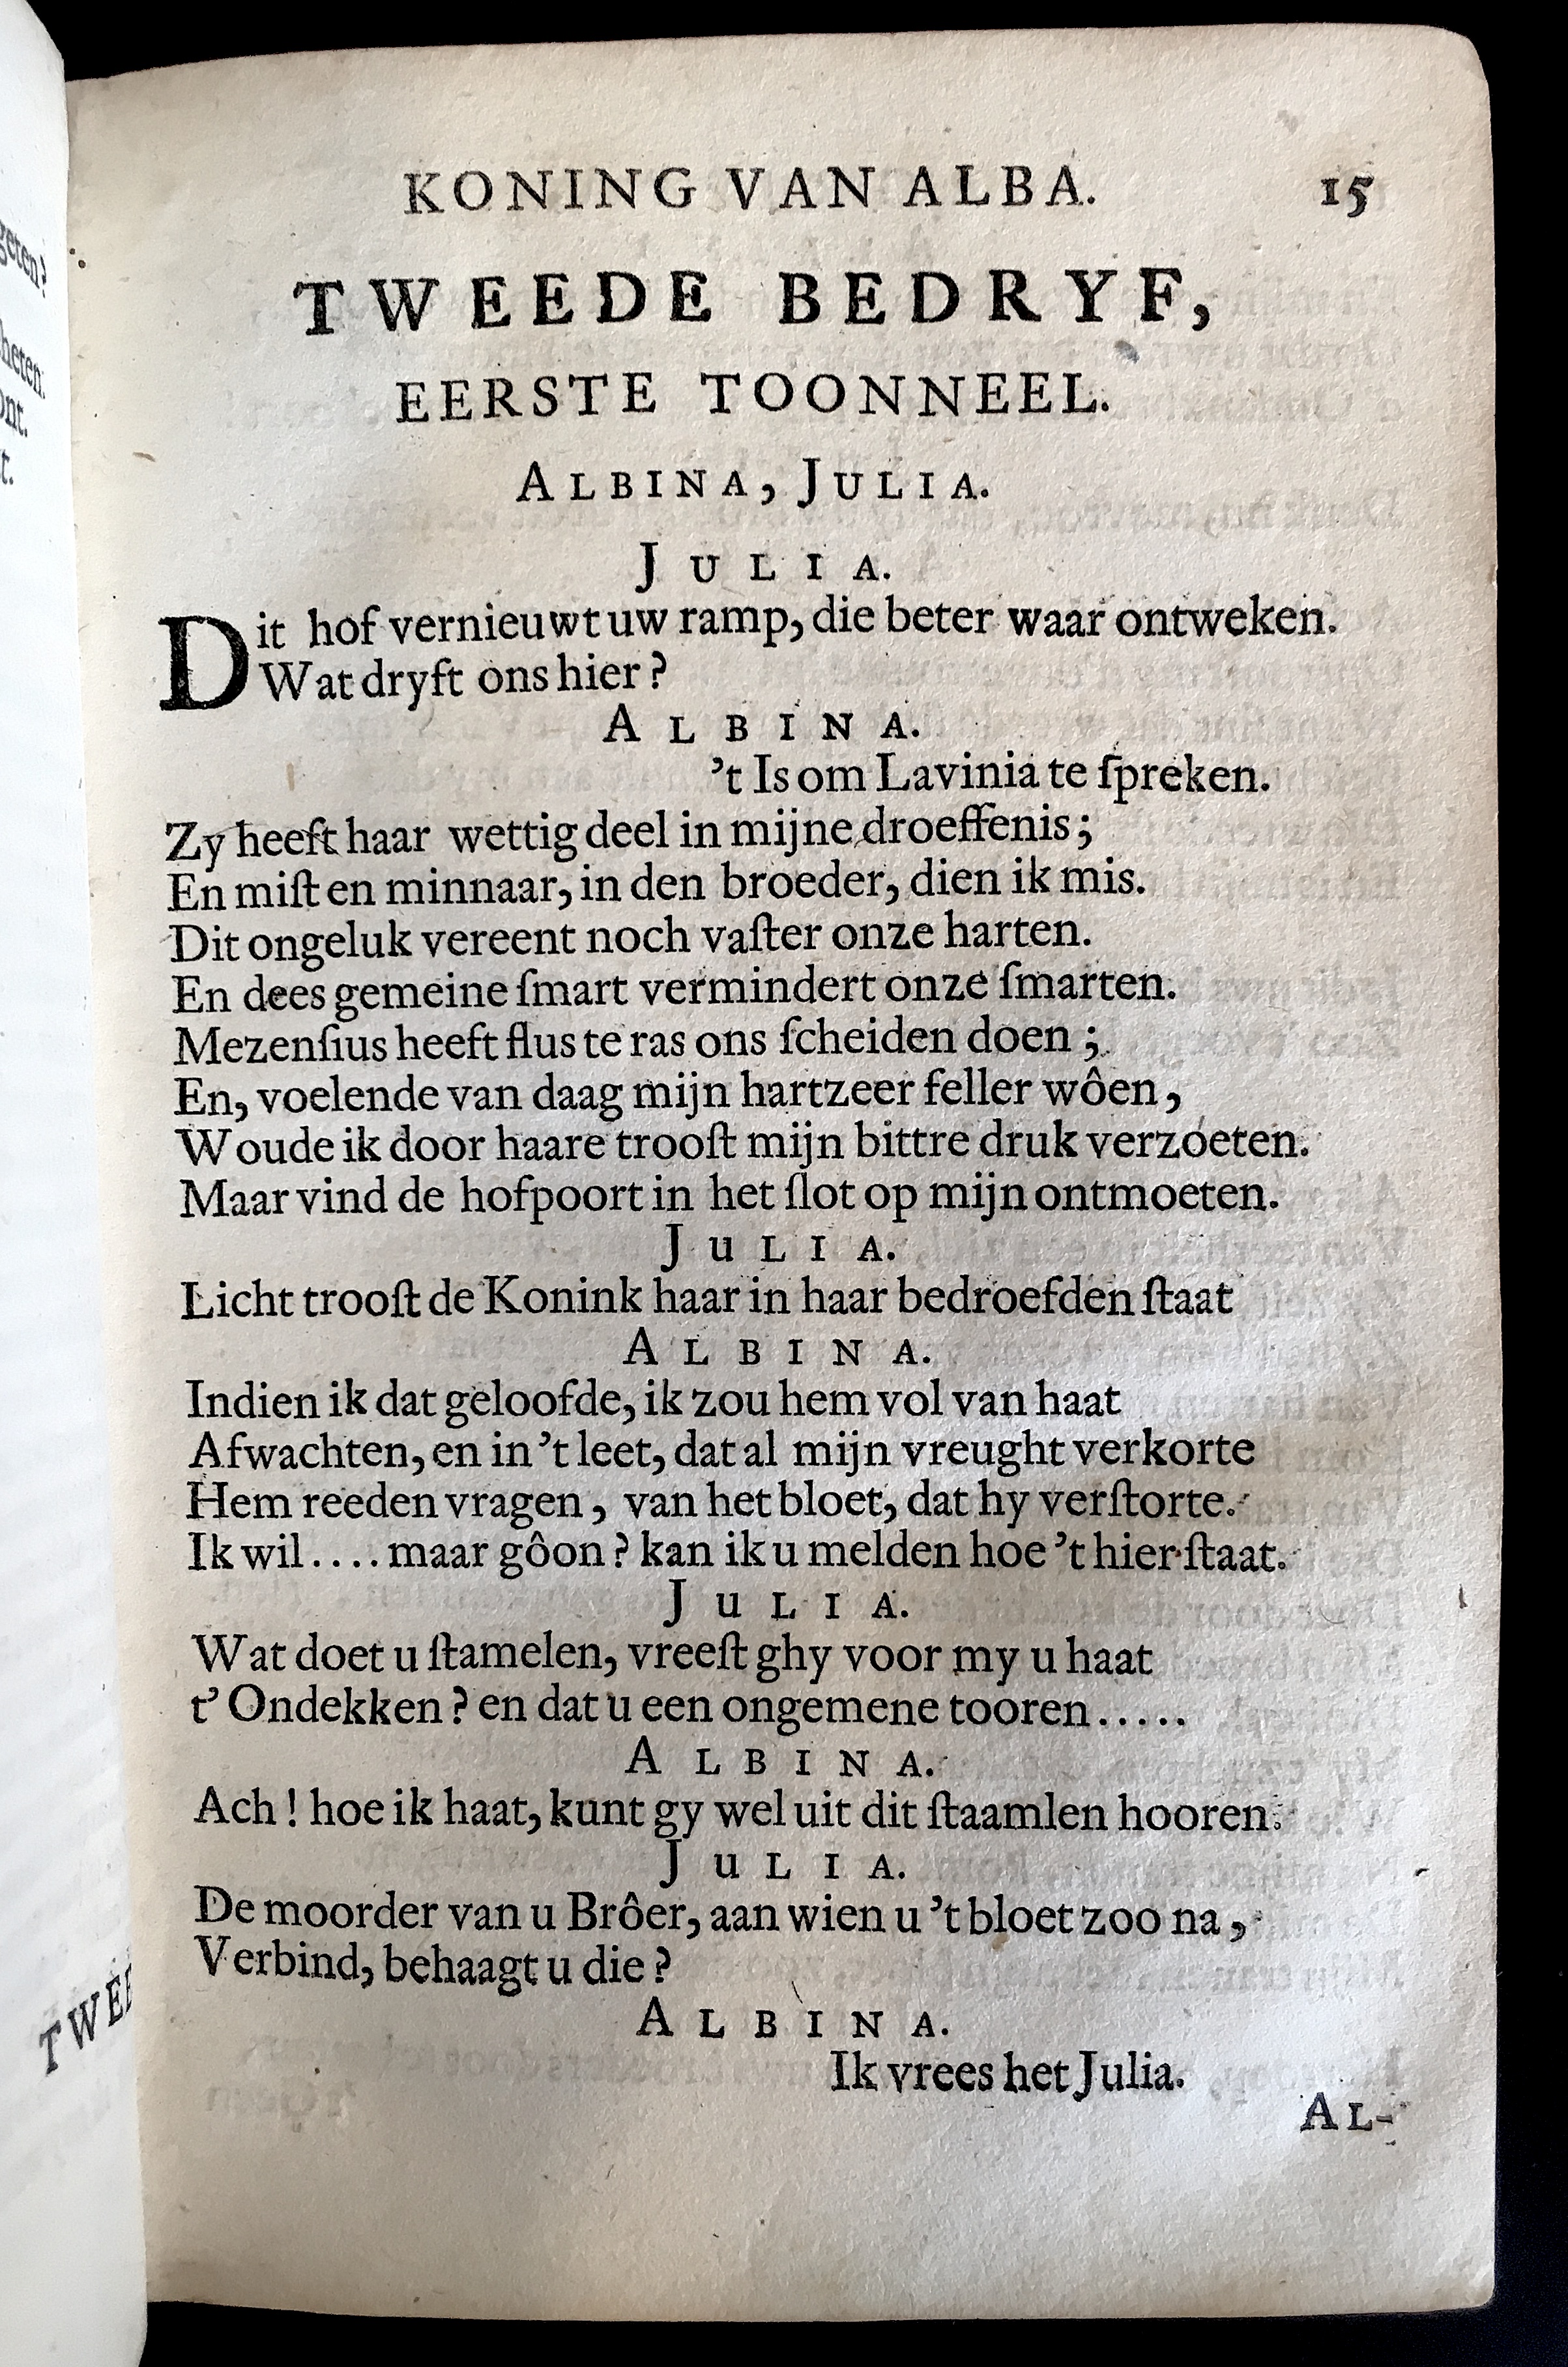 KONING VAN ALBA. 15
TWEEDE BEDRYF,
EERSTE TOONNEEL.
ALBINA, JULIA.
JULIA.
Dit hof vernieuwt uw ramp, die beter waar ontweken.
Wat dryft ons hier?
ALBINA.
't Is om Lavinia te ſpreken.
Zy heeft haar wettig deel in mijne droeffenis;
En miſt en minnaar, in den broeder, dien ik mis.
Dit ongeluk vereent noch vaſter onze harten.
En dees gemeine ſmart vermindert onze ſmarten.
Mezenſius heeft flus te ras ons ſcheiden doen;
En, voelende van daag mijn hartzeer feller wôen,
Woude ik door haare trooſt mijn bittre druk verzoeten.
Maar vind de hofpoort in het ſlot op mijn ontmoeten.
JULIA.
Licht trooſt de Konink haar in haar bedroefden ſtaat
ALBINA.
Indien ik dat geloofde, ik zou hem vol van haat
Afwachten, en in 't leet, dat al mijn vreught verkorte
Hem reeden vragen, van het bloet, dat hy verſtorte.
Ik wil.... maar gôon? kan ik u melden hoe 't hier ſtaat.
JULIA.
Wat doet u ſtamelen, vreeſt ghy voor my u haat
t' Ondekken? en dat u een ongemene tooren.....
ALBINA.
Ach! hoe ik haat, kunt gy wel uit dit ſtaamlen hooren.
JULIA.
De moorder van u Brôer, aan wien u 't bloet zoo na,
Verbind, behaagt u die?
ALBINA.
Ik vrees het Julia.
AL-
geten?
heten.
ont.
t.
TWEE